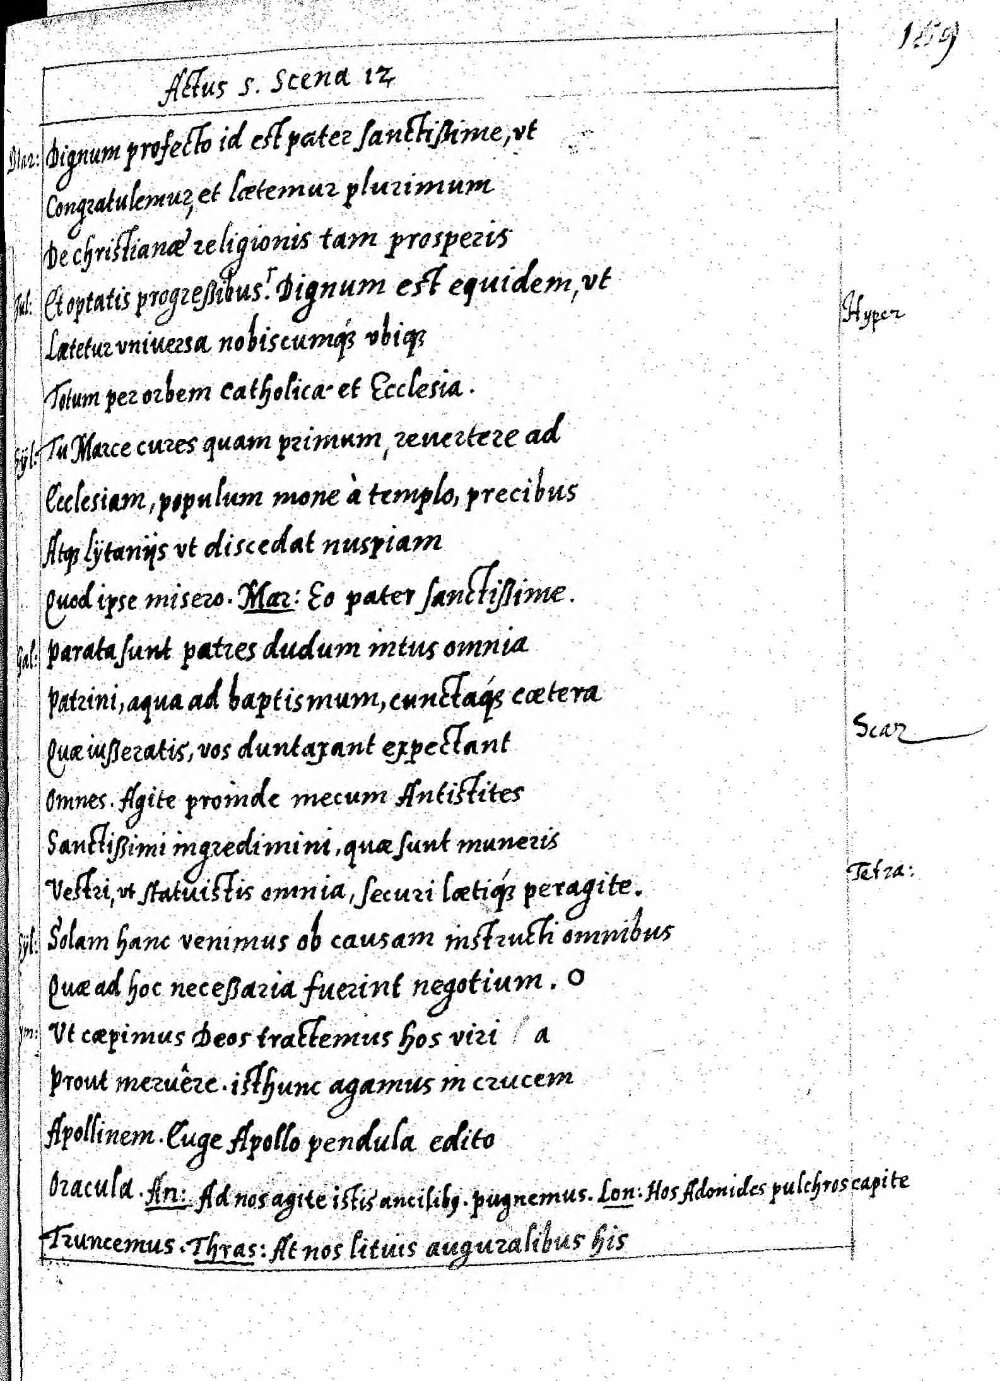 159
Actus 5. Scena 12
Mar: Dignum profecto id est pater sanctißime, vt
Congratulemur, et lætemur plurimum
De christianæ religionis tam prosperis
Jul: Et optatis progreßibus. Dignum est equidem, vt
Hyper
Lætetur vniversa nobiscumq́ꝫ vbiqꝫ
Totum per orbem catholica et Ecclesia.
Syl: Tu Marce cures quam primum, revertere ad
Ecclesiam, populum mone à templo, precibus
Atqꝫ lÿtanijs vt discedat nuspiam
Quod ipse misero. Mar: Eo pater sanctißime.
Gal: Parata sunt patres dudum intus omnia
Patrini, aqua ad baptismum, cunctaq́ꝫ cætera
Scar
Quæ iußeratis, vos duntaxant expectant
Omnes. Agite proinde mecum Antistites
Sanctißimi ingredimini, quæ sunt muneris
Vestri, vt statuistis omnia, securi lætiq́ꝫ peragite.
Tetra:
Syl: Solam hanc venimus ob causam instructi omnibus
Quæ ad hoc neceßaria fuerint negotium. O
Vt cæpimus Deos tractemus hos viri a
Prout meruêre. isthunc agamus in crucem
Apollinem. Euge Apollo pendula edito
Oracula. An: Ad nos agite istis ancilibꝫ. pugnemus. Lon: Hos Adonides pulchros capite
Truncemus. Thras: At nos lituis auguralibus his